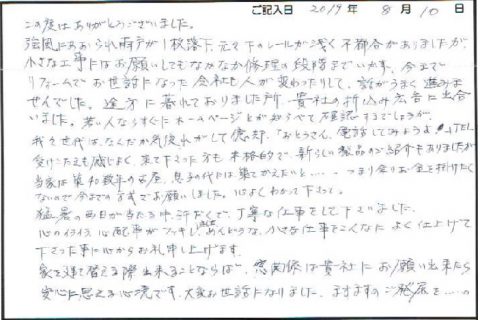 ご記入日 2019年 8月 10日
この度はありがとうございました。
強風にあおられ雨戸が1枚落下、元々下のレールが浅く不都合がありましたが、
小さな工事にはお願いしてもなかなか修理の段階までいかず、今まで
リフォームでお世話になった会社も人が変わったりして、話がうまく進みま
せんでした。途方に暮れておりました所、貴社の折込み広告に出合
いました。若い人ならすぐにホームページとか調べて確認するでしょうが、
我々世代は、なんだか気後れがして億却、「おとうさん、電話してみようよ」TEL
受けこたえも感じよく、来て下さった方も本格的で、新らしい製品のご紹介もありましたが
当家は築和数年の古屋、息子の代には建てかえたいと…… つまり余りお金を掛けたく
ないので今までの方式でお願いしました。心よくわかって下さって。
猛暑の西日が当たる中、汗だくで、丁寧な仕事をして下さいました。
心のイライラ、心配事がスッキリ、めんどうな、小さな仕事をこんなに よく仕上げて
下さった事に心からお礼申し上げます。
家を建て替える際出来ることならば、窓関係は貴社にお願い出来たら
安心に思える心境です。大変お世話になりました。ますますのご発展を……の